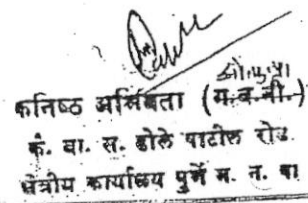 ओ.प.पा
कनिष्ठ अभियंता (म.व.नी.)
कै. बा. स. ढोले पाटील रोड
क्षेत्रीय कार्यालय पुणें म. न. पा